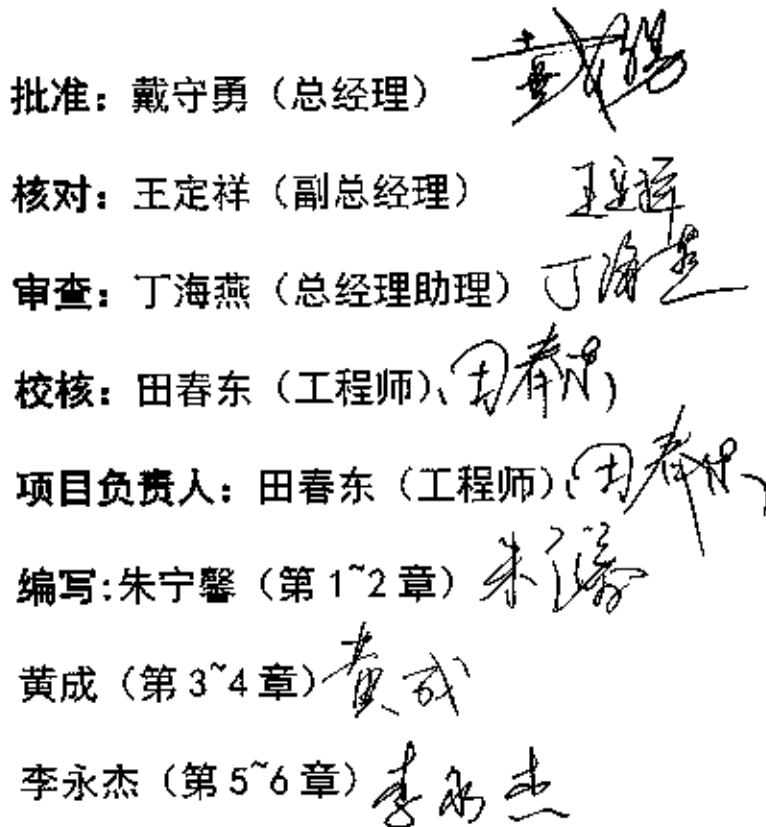 批准：戴守勇（总经理）
核对：王定祥（副总经理） 王定祥
审查：丁海燕（总经理助理） 丁海燕
校核：田春东（工程师） 田春东
项目负责人：田春东（工程师） 田春东
编写:朱宁馨（第1~2章） 朱宁馨
黄成（第3~4章） 黄成
李永杰（第5~6章） 李永杰